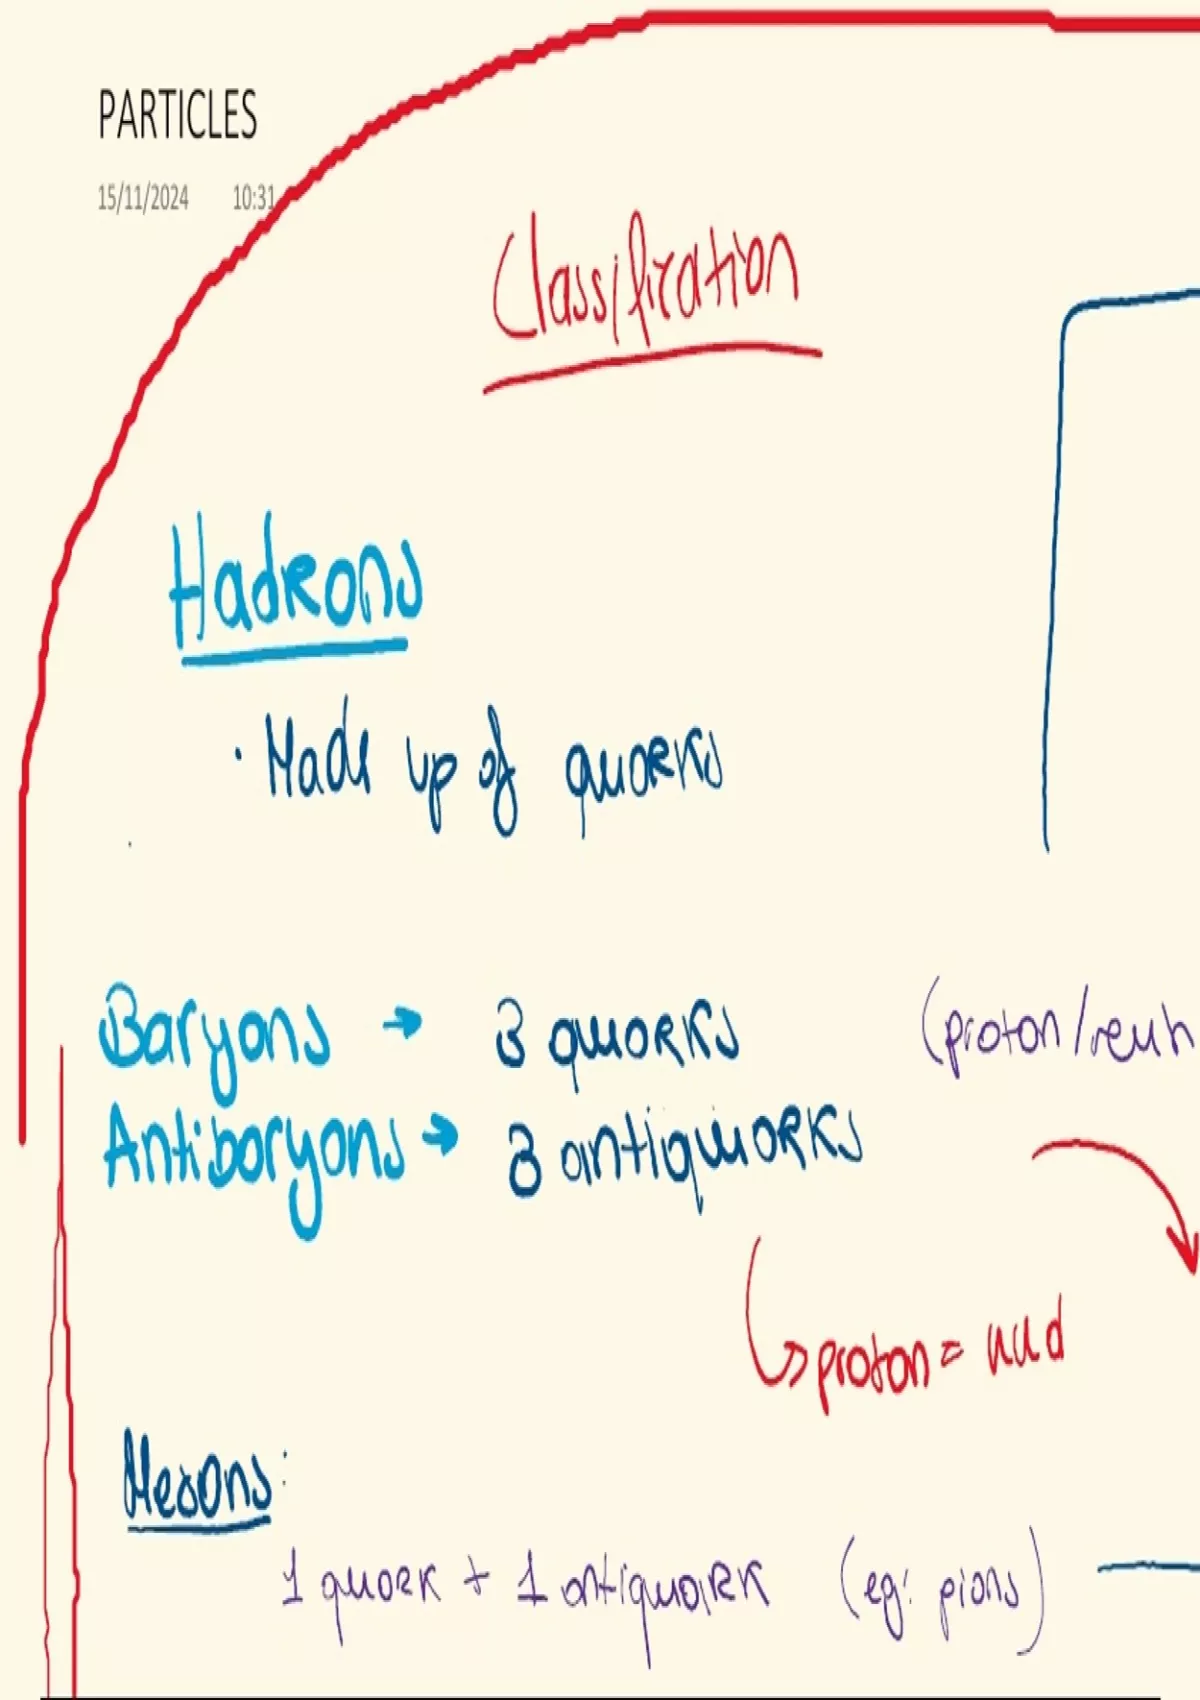 PARTICLES
15/11/2024 10:31
Classification
Hadrons
· Made up of quarks
Baryons → 3 quarks (proton/neut
Antibaryons → 3 antiquarks
↳ proton = uud
Mesons:
1 quark + 1 antiquark (eg: pions)